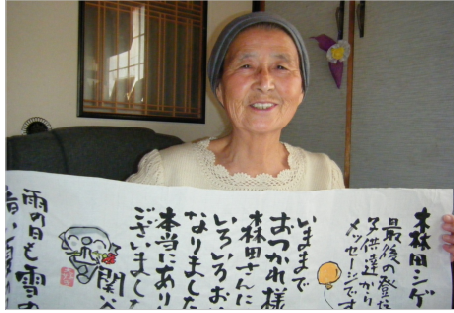 木林田シゲ
最後の登
子供達から
メッセージです
いままで
おつかれ様
木林田さんに
いろいろお
なりました
本当にあり
ございました
関
雨の日も雪の